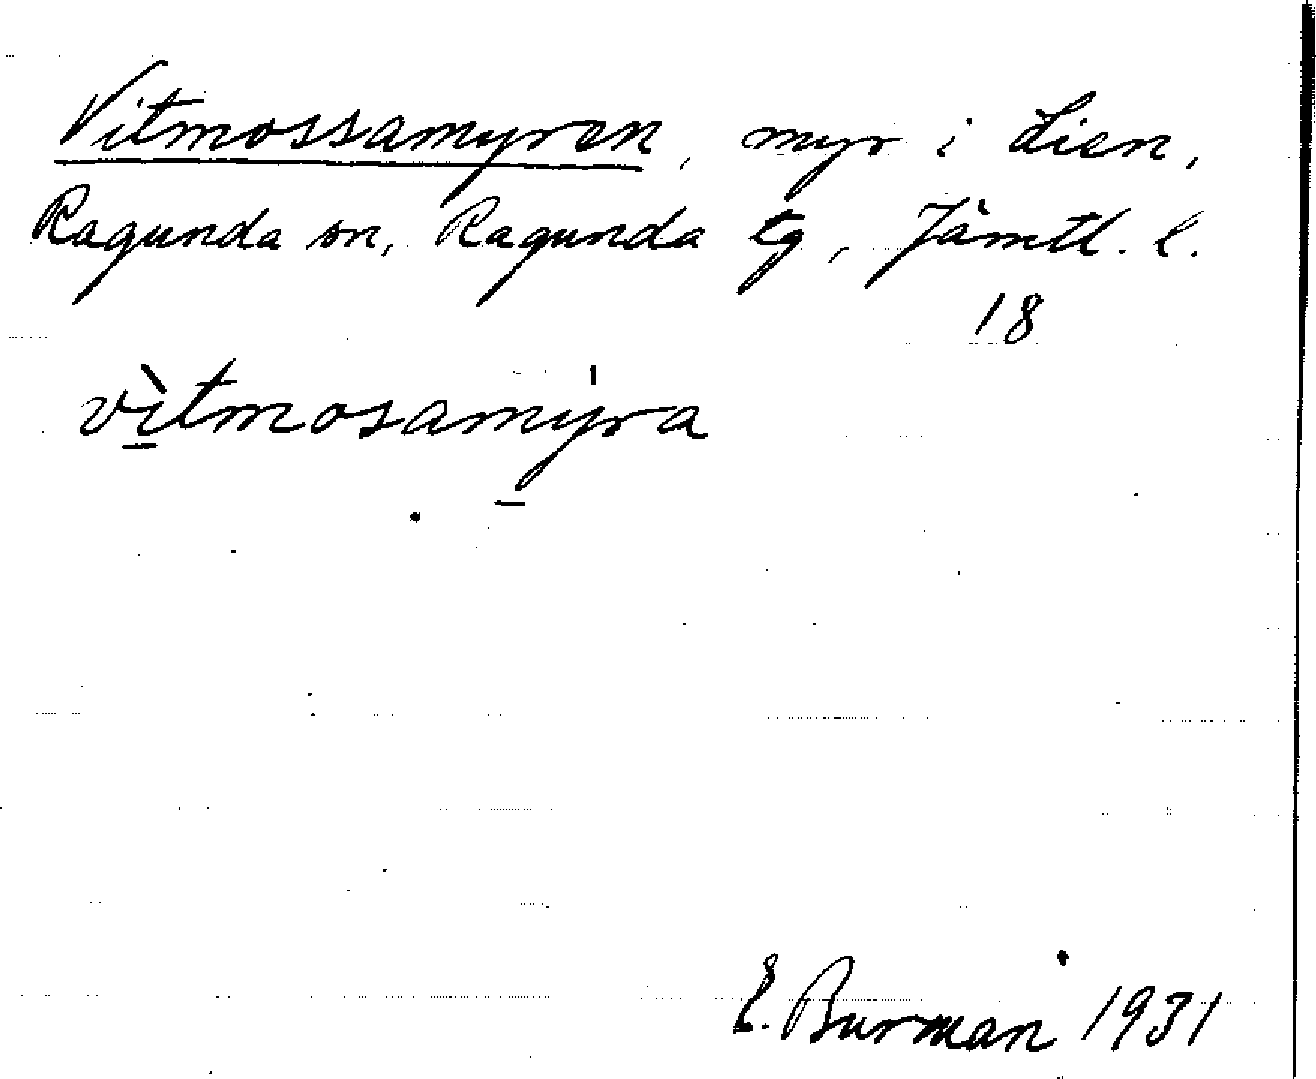 Vitmossamyren, myr i Lien,
Ragunda sn, Ragunda tg, Jämtl. l.
18
vìtmosamýra
E. Burman 1931